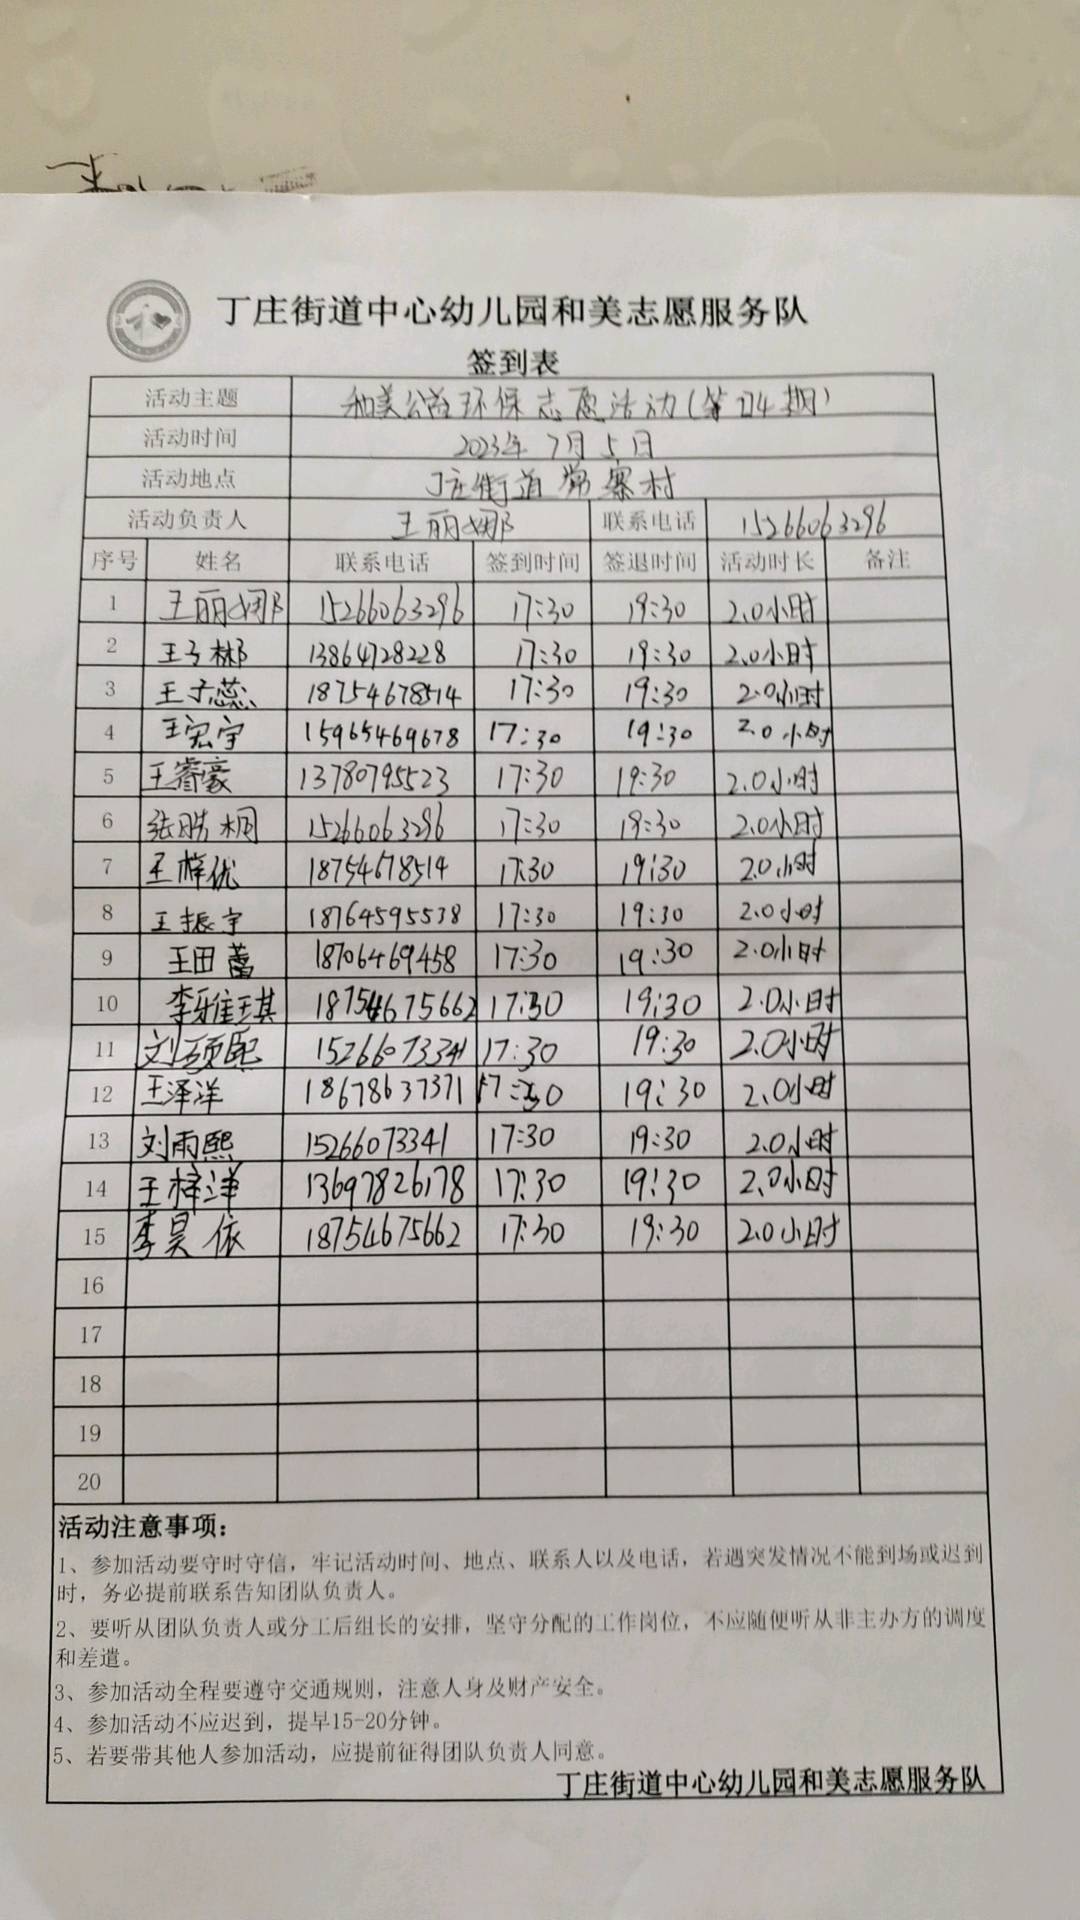 和
丁庄街道中心幼儿园和美志愿服务队
签到表
活动主题 和美公益环保志愿活动(第 期)
活动时间 2023年7月5日
活动地点 丁庄街道常寨村
活动负责人 王丽娜 联系电话 15266063296
序号 姓名 联系电话 签到时间 签退时间 活动时长 备注
1 王丽娜 15266063296 17:30 19:30 2.0小时
2 王子彬 13864728228 17:30 19:30 2.0小时
3 王子蕊 18754678514 17:30 19:30 2.0小时
4 王宏宇 15965469678 17:30 19:30 2.0小时
5 王睿豪 13780795523 17:30 19:30 2.0小时
6 张皓桐 15266063296 17:30 19:30 2.0小时
7 王梓优 18754678514 17:30 19:30 2.0小时
8 王振宇 18764595538 17:30 19:30 2.0小时
9 王田蕾 18706469458 17:30 19:30 2.0小时
10 李雅琪 18754675662 17:30 19:30 2.0小时
11 刘硕熙 15266073341 17:30 19:30 2.0小时
12 王泽洋 18678637371 17:30 19:30 2.0小时
13 刘雨熙 15266073341 17:30 19:30 2.0小时
14 王梓洋 13697826178 17:30 19:30 2.0小时
15 李昊依 18754675662 17:30 19:30 2.0小时
16
17
18
19
20
活动注意事项：
1、参加活动要守时守信，牢记活动时间、地点、联系人以及电话，若遇突发情况不能到场或迟到
时，务必提前联系告知团队负责人。
2、要听从团队负责人或分工后组长的安排，坚守分配的工作岗位，不应随便听从非主办方的调度
和差遣。
3、参加活动全程要遵守交通规则，注意人身及财产安全。
4、参加活动不应迟到，提早15-20分钟。
5、若要带其他人参加活动，应提前征得团队负责人同意。
丁庄街道中心幼儿园和美志愿服务队